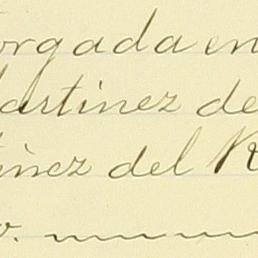 orgada en
artinez de
tinez del R
o.